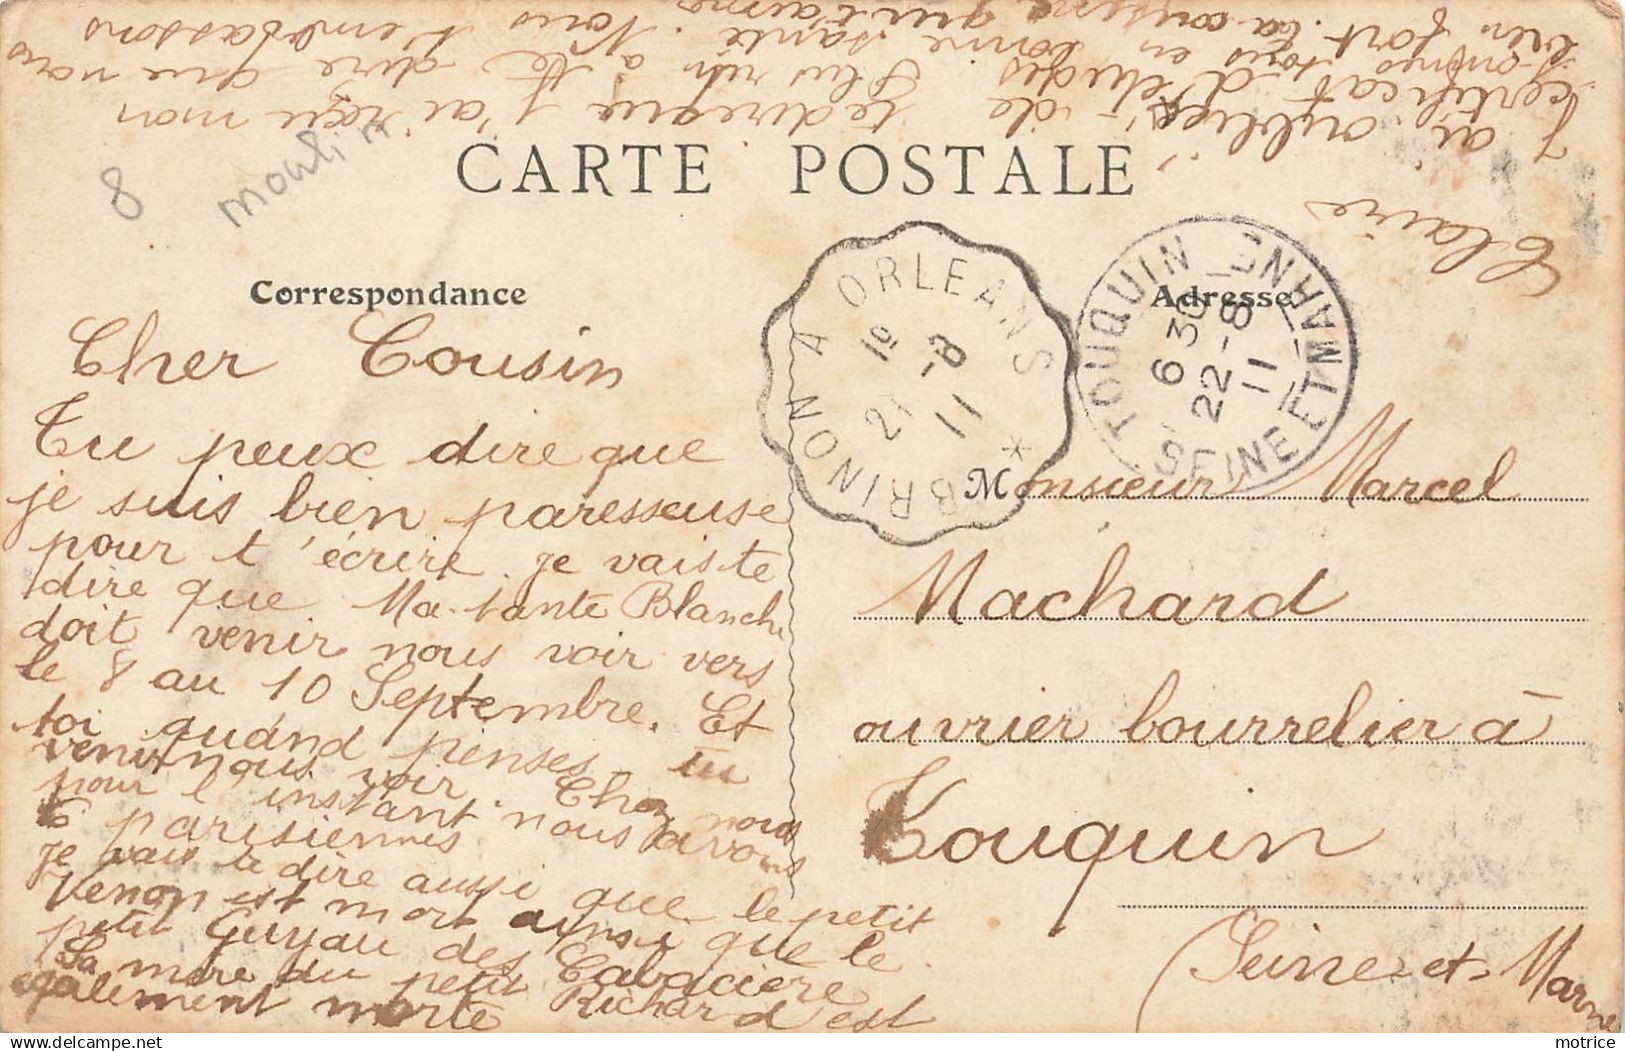 CARTE POSTALE
8
moulin
Correspondance
Adresse
BRINON A ORLEANS *
1º
21 -8
11
TOUQUIN
SEINE ET MARNE
6 30
22 -8
11
Cher Cousin
Tu peux dire que
je suis bien paresseuse
pour t'écrire. je vais te
dire que Ma tante Blanche
doit venir nous voir vers
le 8 au 10 Septembre. Et
toi quand penses-tu
venir nous voir. Chez nous
pour l'instant nous avons
6 parisiennes
je vais te dire aussi que le petit
Venon est mort ainsi que le
petit Guyau des Cabaciere
La mère du petit Richard est
également morte
Monsieur Marcel
Machard
ouvrier bourrelier à
Touquin
(Seine-et-Marne
J'ai oublier de te dire que j'ai reçu mon
certificat d'études Plus rien à te dire que nous
sommes tous en bonne santé. Nous t'embrassons
bien fort. ta cousine qui t'aime
Claire
matrice
Delcampe.net